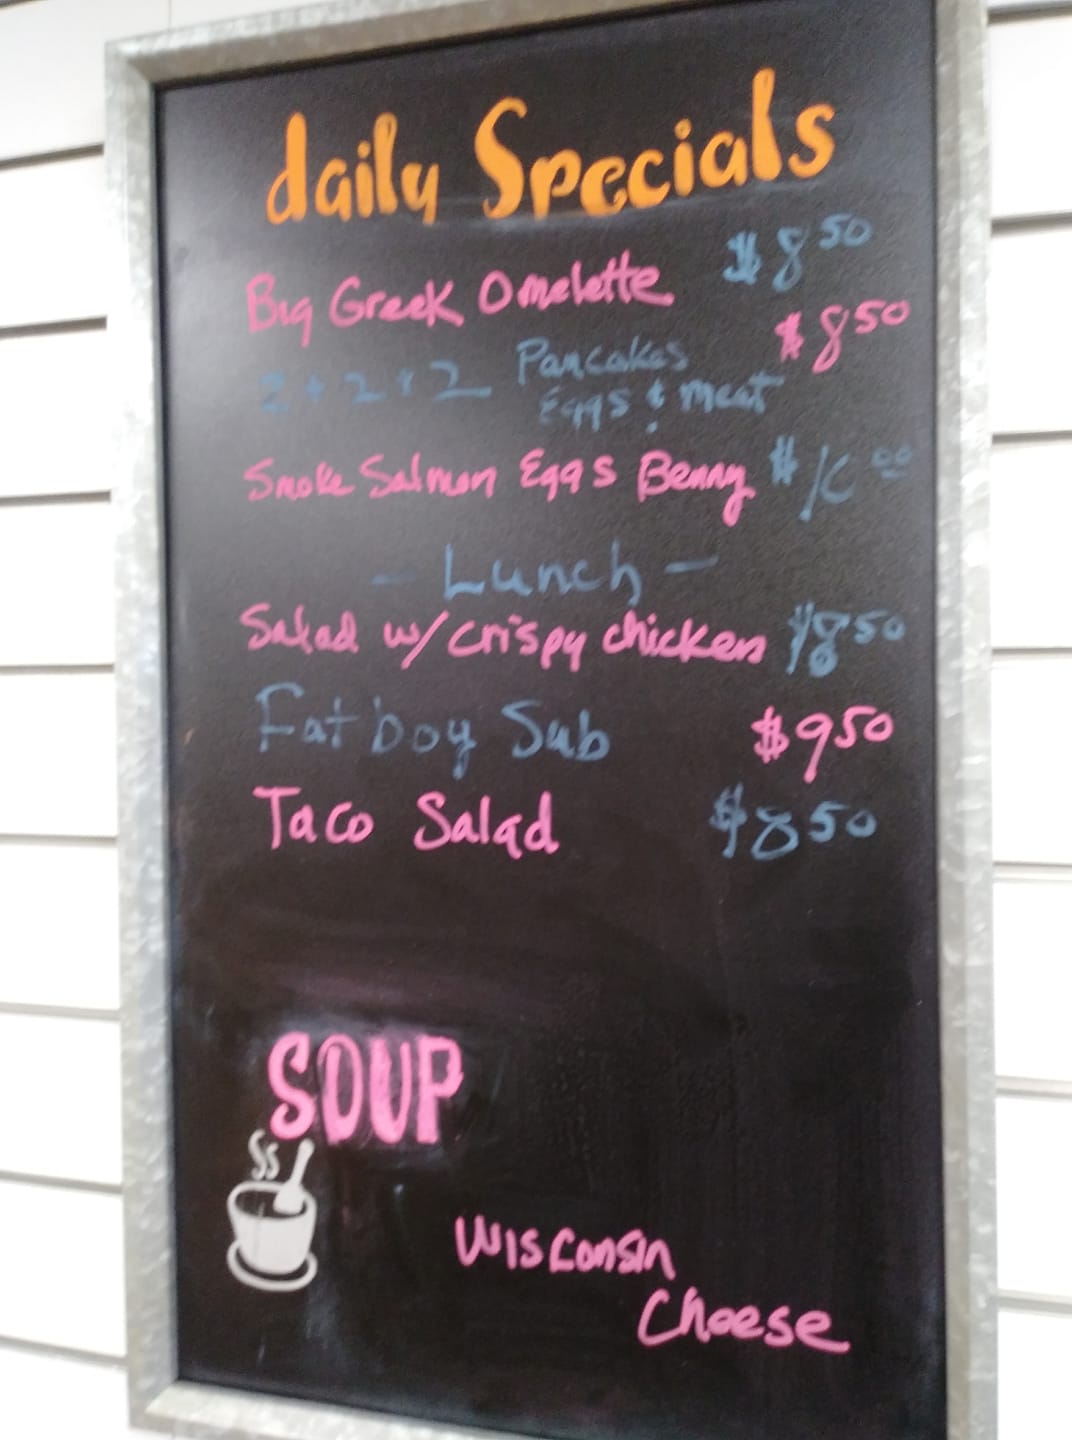 daily Specials
Big Greek Omelette $8 50
2 + 2 + 2 Pancakes $8 50
Eggs & meat
Smoke Salmon Eggs Benny $10 00
- Lunch -
Salad w/ crispy chicken $8 50
Fat boy Sub $9 50
Taco Salad $8 50
SOUP
Wisconsin
Cheese